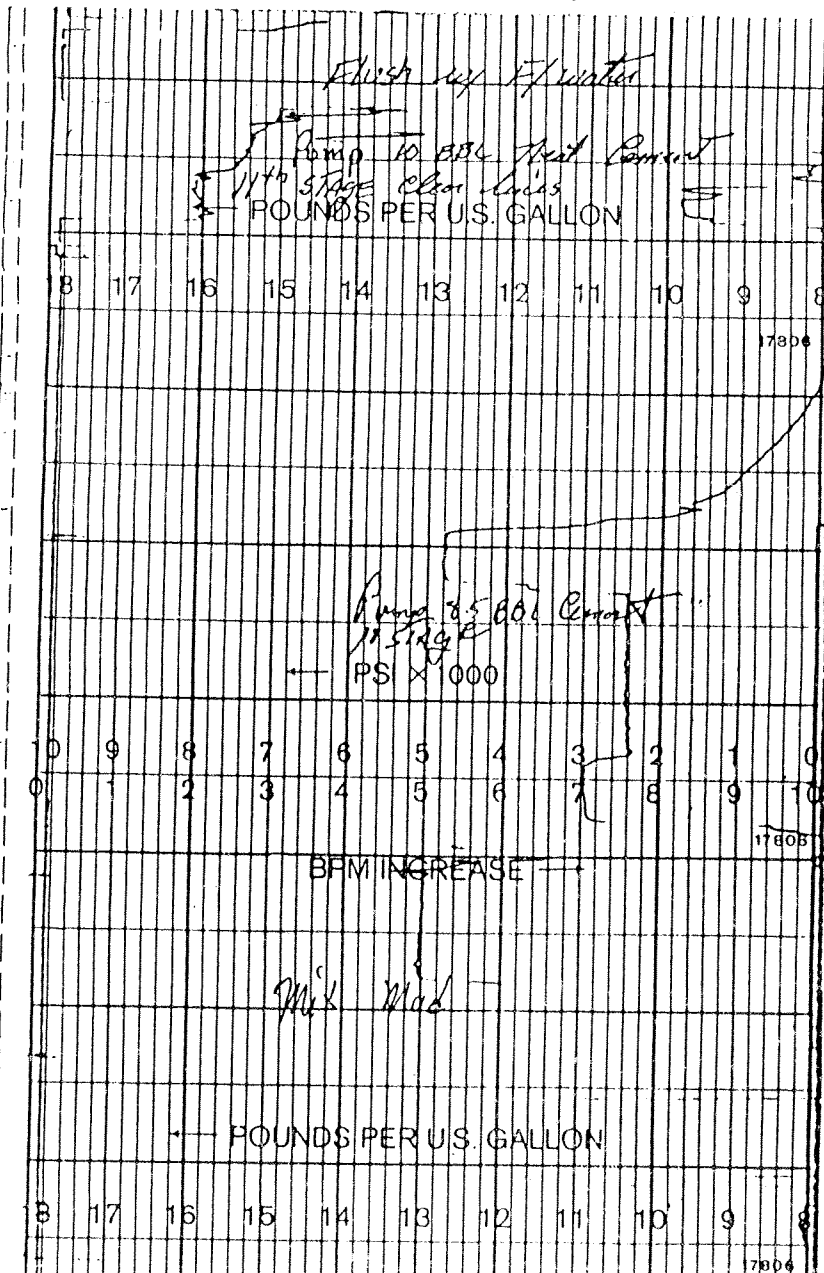 Flush w/ F/water
Pump 10 BBL Neat Cement
11th STAGE Clean Lines
← POUNDS PER U.S. GALLON
18 17 16 15 14 13 12 11 10 9 8
17806
Pump 8.5 BBL Cement
11 STAGE
← PSI X 000
10 9 8 7 6 5 4 3 2 1 0
0 1 2 3 4 5 6 7 8 9 10
17806
BPM INCREASE →
Mix Mud
← POUNDS PER U.S. GALLON
18 17 16 15 14 13 12 11 10 9 8
17806